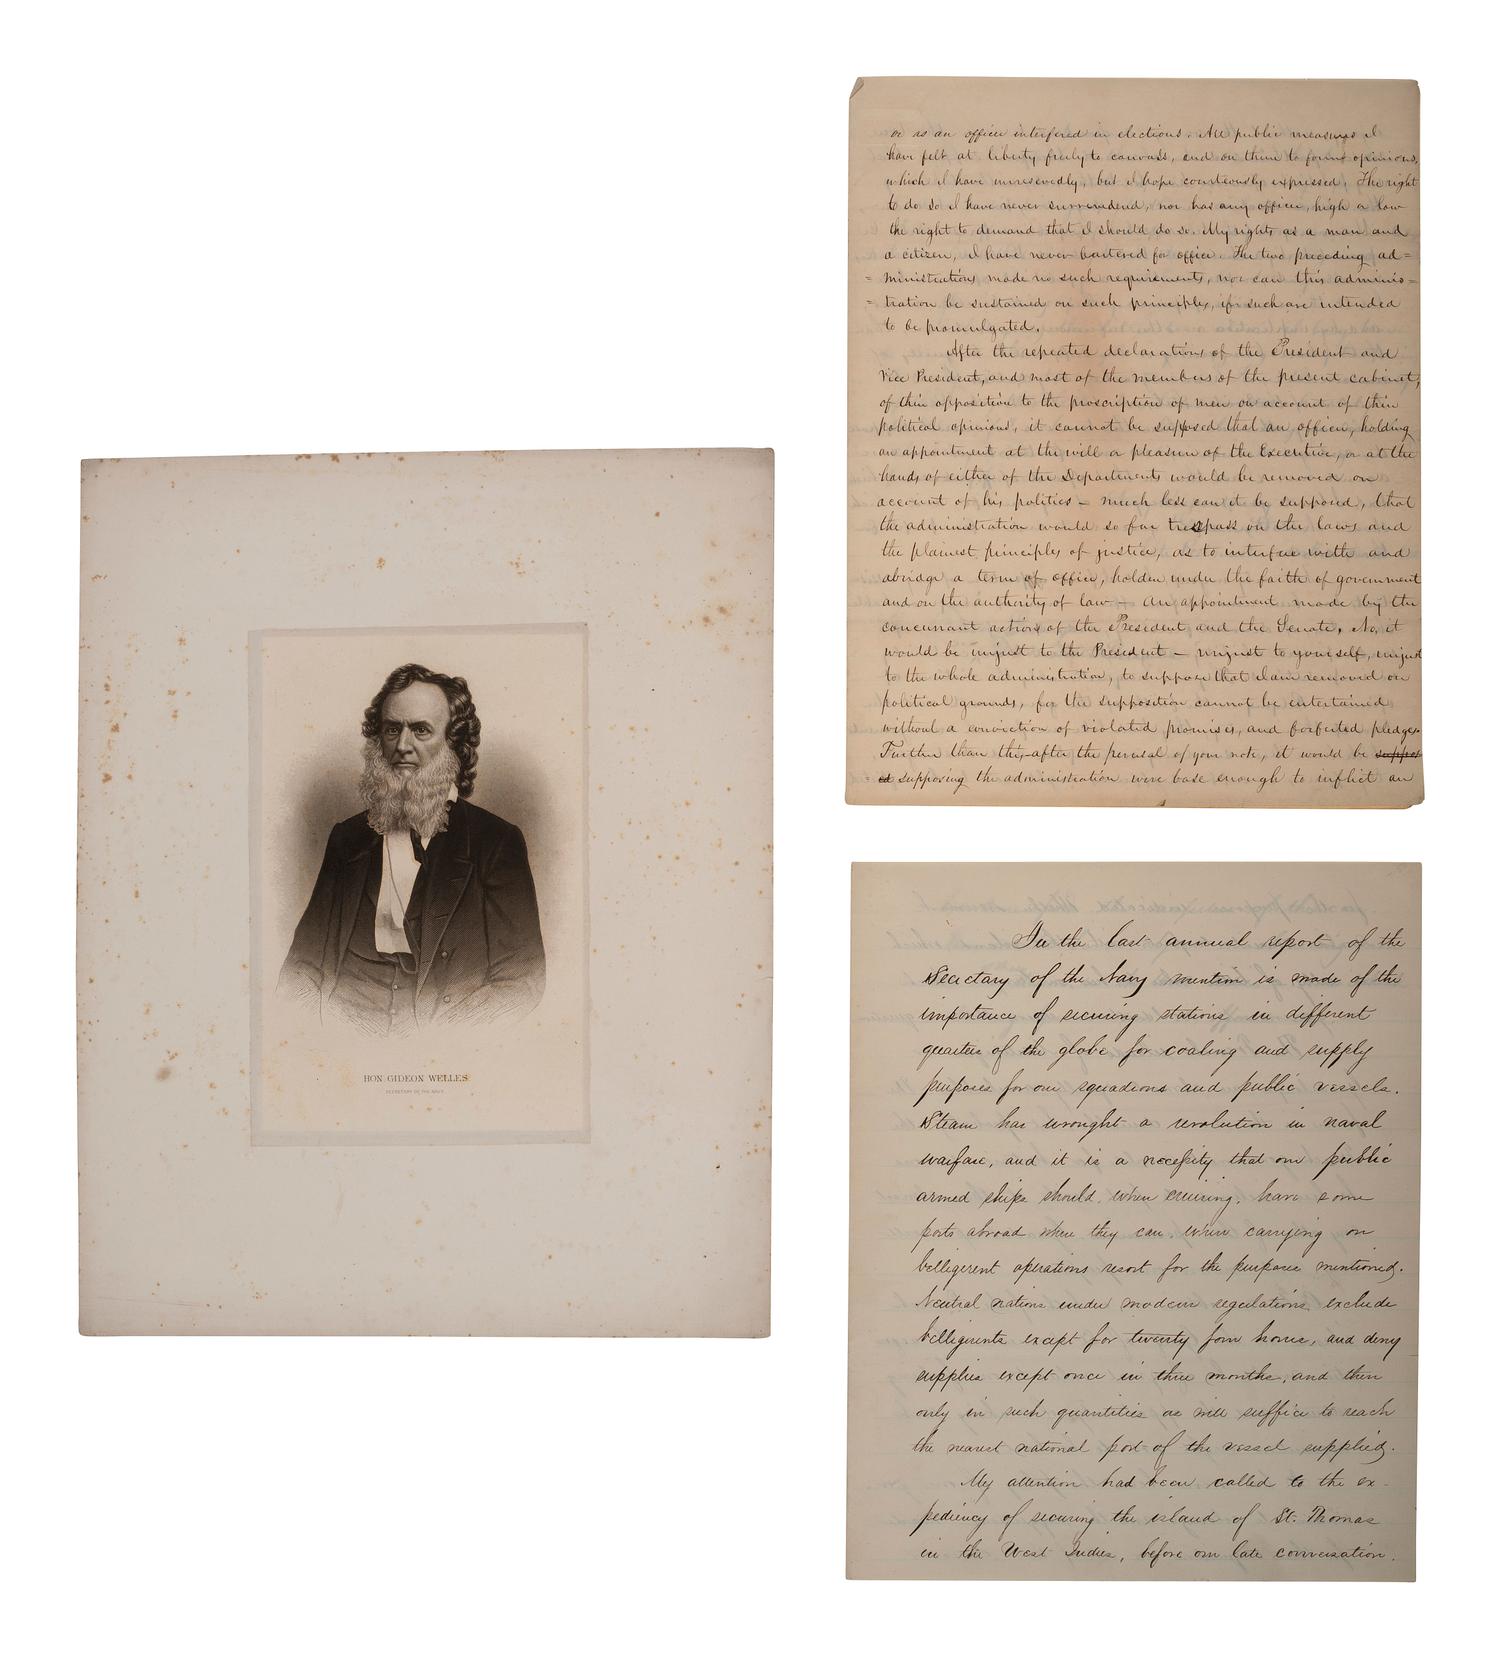 HON. GIDEON WELLES.
SECRETARY OF THE NAVY.
or as an officer interfered in elections. All public measures I
have felt at liberty freely to canvass, and on them to form opinions,
which I have unreservedly, but I hope courteously expressed. The right
to do so I have never surrendered, nor has any officer, high or low
the right to demand that I should do so. My rights as a man and
a citizen, I have never bartered for office. The two preceding ad=
= ministrations made no such requirements, nor can this adminis=
= tration be sustained on such principles, if such are intended
to be promulgated.
After the repeated declarations of the President and
Vice President, and most of the members of the present cabinet,
of their opposition to the proscription of men on account of their
political opinions, it cannot be supposed that an officer, holding
an appointment at the will or pleasure of the Executive, or at the
hands of either of the Departments would be removed on
account of his politics — much less can it be supposed, that
the administration would so far trespass on the laws and
the plainest principles of justice, as to interfere with and
abridge a term of office, holden under the faith of government
and on the authority of law — an appointment made by the
concurrant action of the President and the Senate. No, it
would be unjust to the President — unjust to yourself, unjust
to the whole administration, to suppose that I am removed on
political grounds, for the supposition cannot be entertained
without a conviction of violated promises, and forfeited pledges.
Further than this, after the perusal of your note, it would be suppos
ed supposing the administration were base enough to inflict an
In the last annual report of the
Secretary of the Navy mention is made of the
importance of securing stations in different
quarters of the globe for coaling and supply
purposes for our squadrons and public vessels.
Steam has wrought a revolution in naval
warfare, and it is a necessity that our public
armed ships should, when cruising, have some
ports abroad where they can, when carrying on
belligerent operations resort for the purposes mentioned.
Neutral nations under modern regulations exclude
belligerents except for twenty four hours, and deny
supplies except once in three months, and then
only in such quantities as will suffice to reach
the nearest national port of the vessel supplied.
My attention had been called to the ex-
pediency of securing the island of St. Thomas
in the West Indies, before our late conversation.